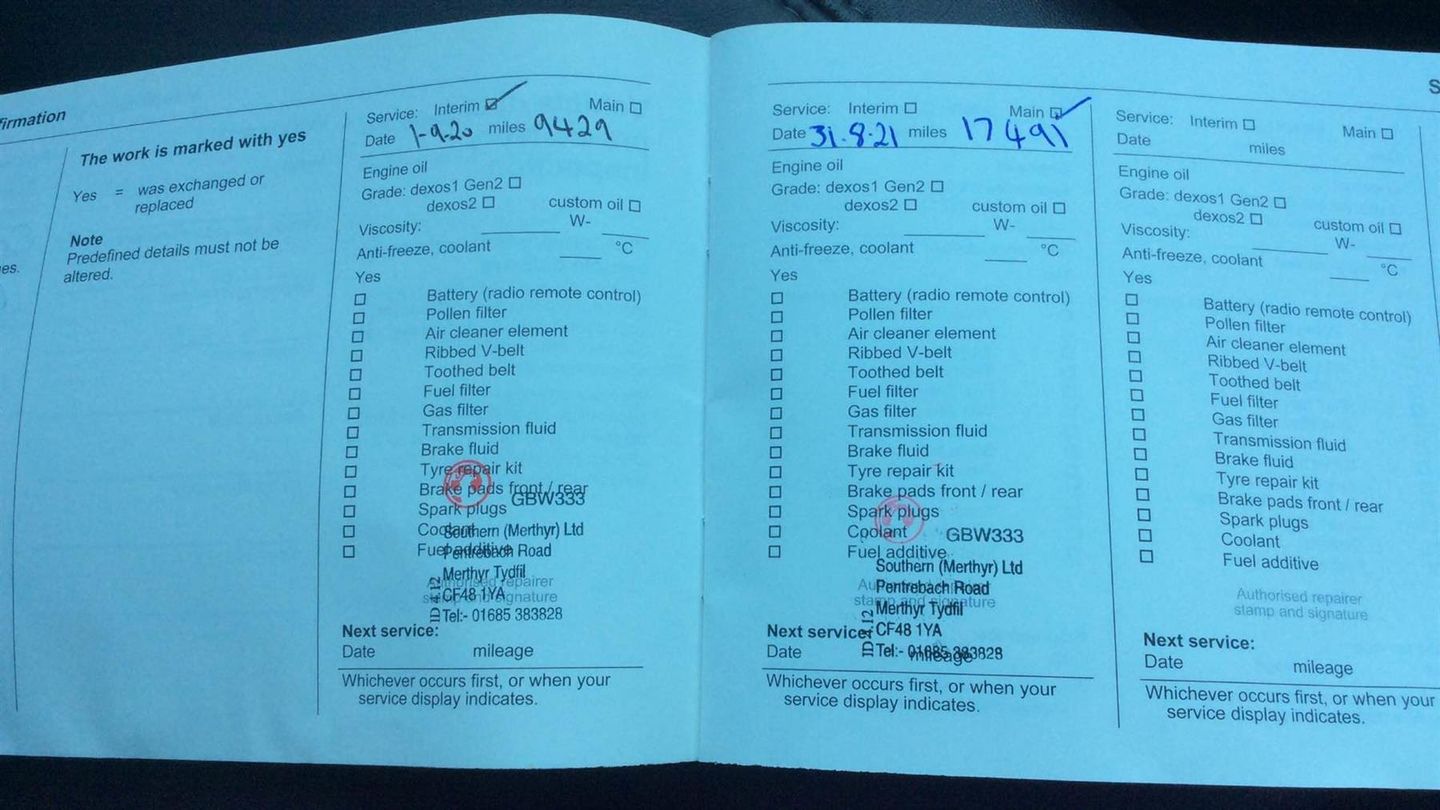 firmation
The work is marked with yes
Yes = was exchanged or
replaced
Note
Predefined details must not be
altered.
es.
Service: Interim Main
Date 1-9-20 miles 9429
Engine oil
Grade: dexos1 Gen2
dexos2 custom oil
Viscosity: W-
Anti-freeze, coolant °C
Yes
Battery (radio remote control)
Pollen filter
Air cleaner element
Ribbed V-belt
Toothed belt
Fuel filter
Gas filter
Transmission fluid
Brake fluid
Tyre repair kit
Brake pads front / rear
GBW333
Spark plugs
Coolant
Southern (Merthyr) Ltd
Fuel additive
Pentrebach Road
Merthyr Tydfil
Authorised repairer
CF48 1YA
stamp and signature
Tel:- 01685 383828
ID 4.12
Next service:
Date mileage
Whichever occurs first, or when your
service display indicates.
Service: Interim Main
Date 31.8.21 miles 17491
Engine oil
Grade: dexos1 Gen2
dexos2 custom oil
Viscosity: W-
Anti-freeze, coolant °C
Yes
Battery (radio remote control)
Pollen filter
Air cleaner element
Ribbed V-belt
Toothed belt
Fuel filter
Gas filter
Transmission fluid
Brake fluid
Tyre repair kit
Brake pads front / rear
Spark plugs
Coolant
GBW333
Fuel additive
Southern (Merthyr) Ltd
Authorised repairer
Pentrebach Road
stamp and signature
Merthyr Tydfil
Next service:
CF48 1YA
Tel:- 01685 383828
ID 4.12
Date mileage
Whichever occurs first, or when your
service display indicates.
S
Service: Interim Main
Date miles
Engine oil
Grade: dexos1 Gen2
dexos2 custom oil
Viscosity: W-
Anti-freeze, coolant °C
Yes
Battery (radio remote control)
Pollen filter
Air cleaner element
Ribbed V-belt
Toothed belt
Fuel filter
Gas filter
Transmission fluid
Brake fluid
Tyre repair kit
Brake pads front / rear
Spark plugs
Coolant
Fuel additive
Authorised repairer
stamp and signature
Next service:
Date mileage
Whichever occurs first, or when your
service display indicates.